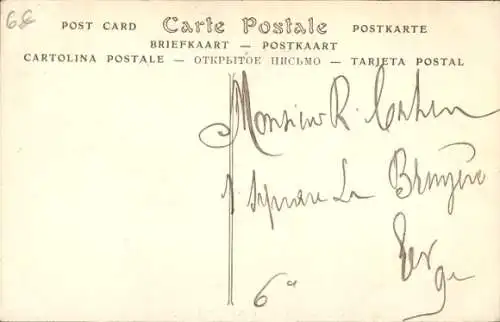 6€
POST CARD Carte Postale POSTKARTE
BRIEFKAART — POSTKAART
CARTOLINA POSTALE — ОТКРЫТОЕ ПИСЬМО — TARJETA POSTAL
Monsieur R. Cahen
1 Square La Bruyère
6ª